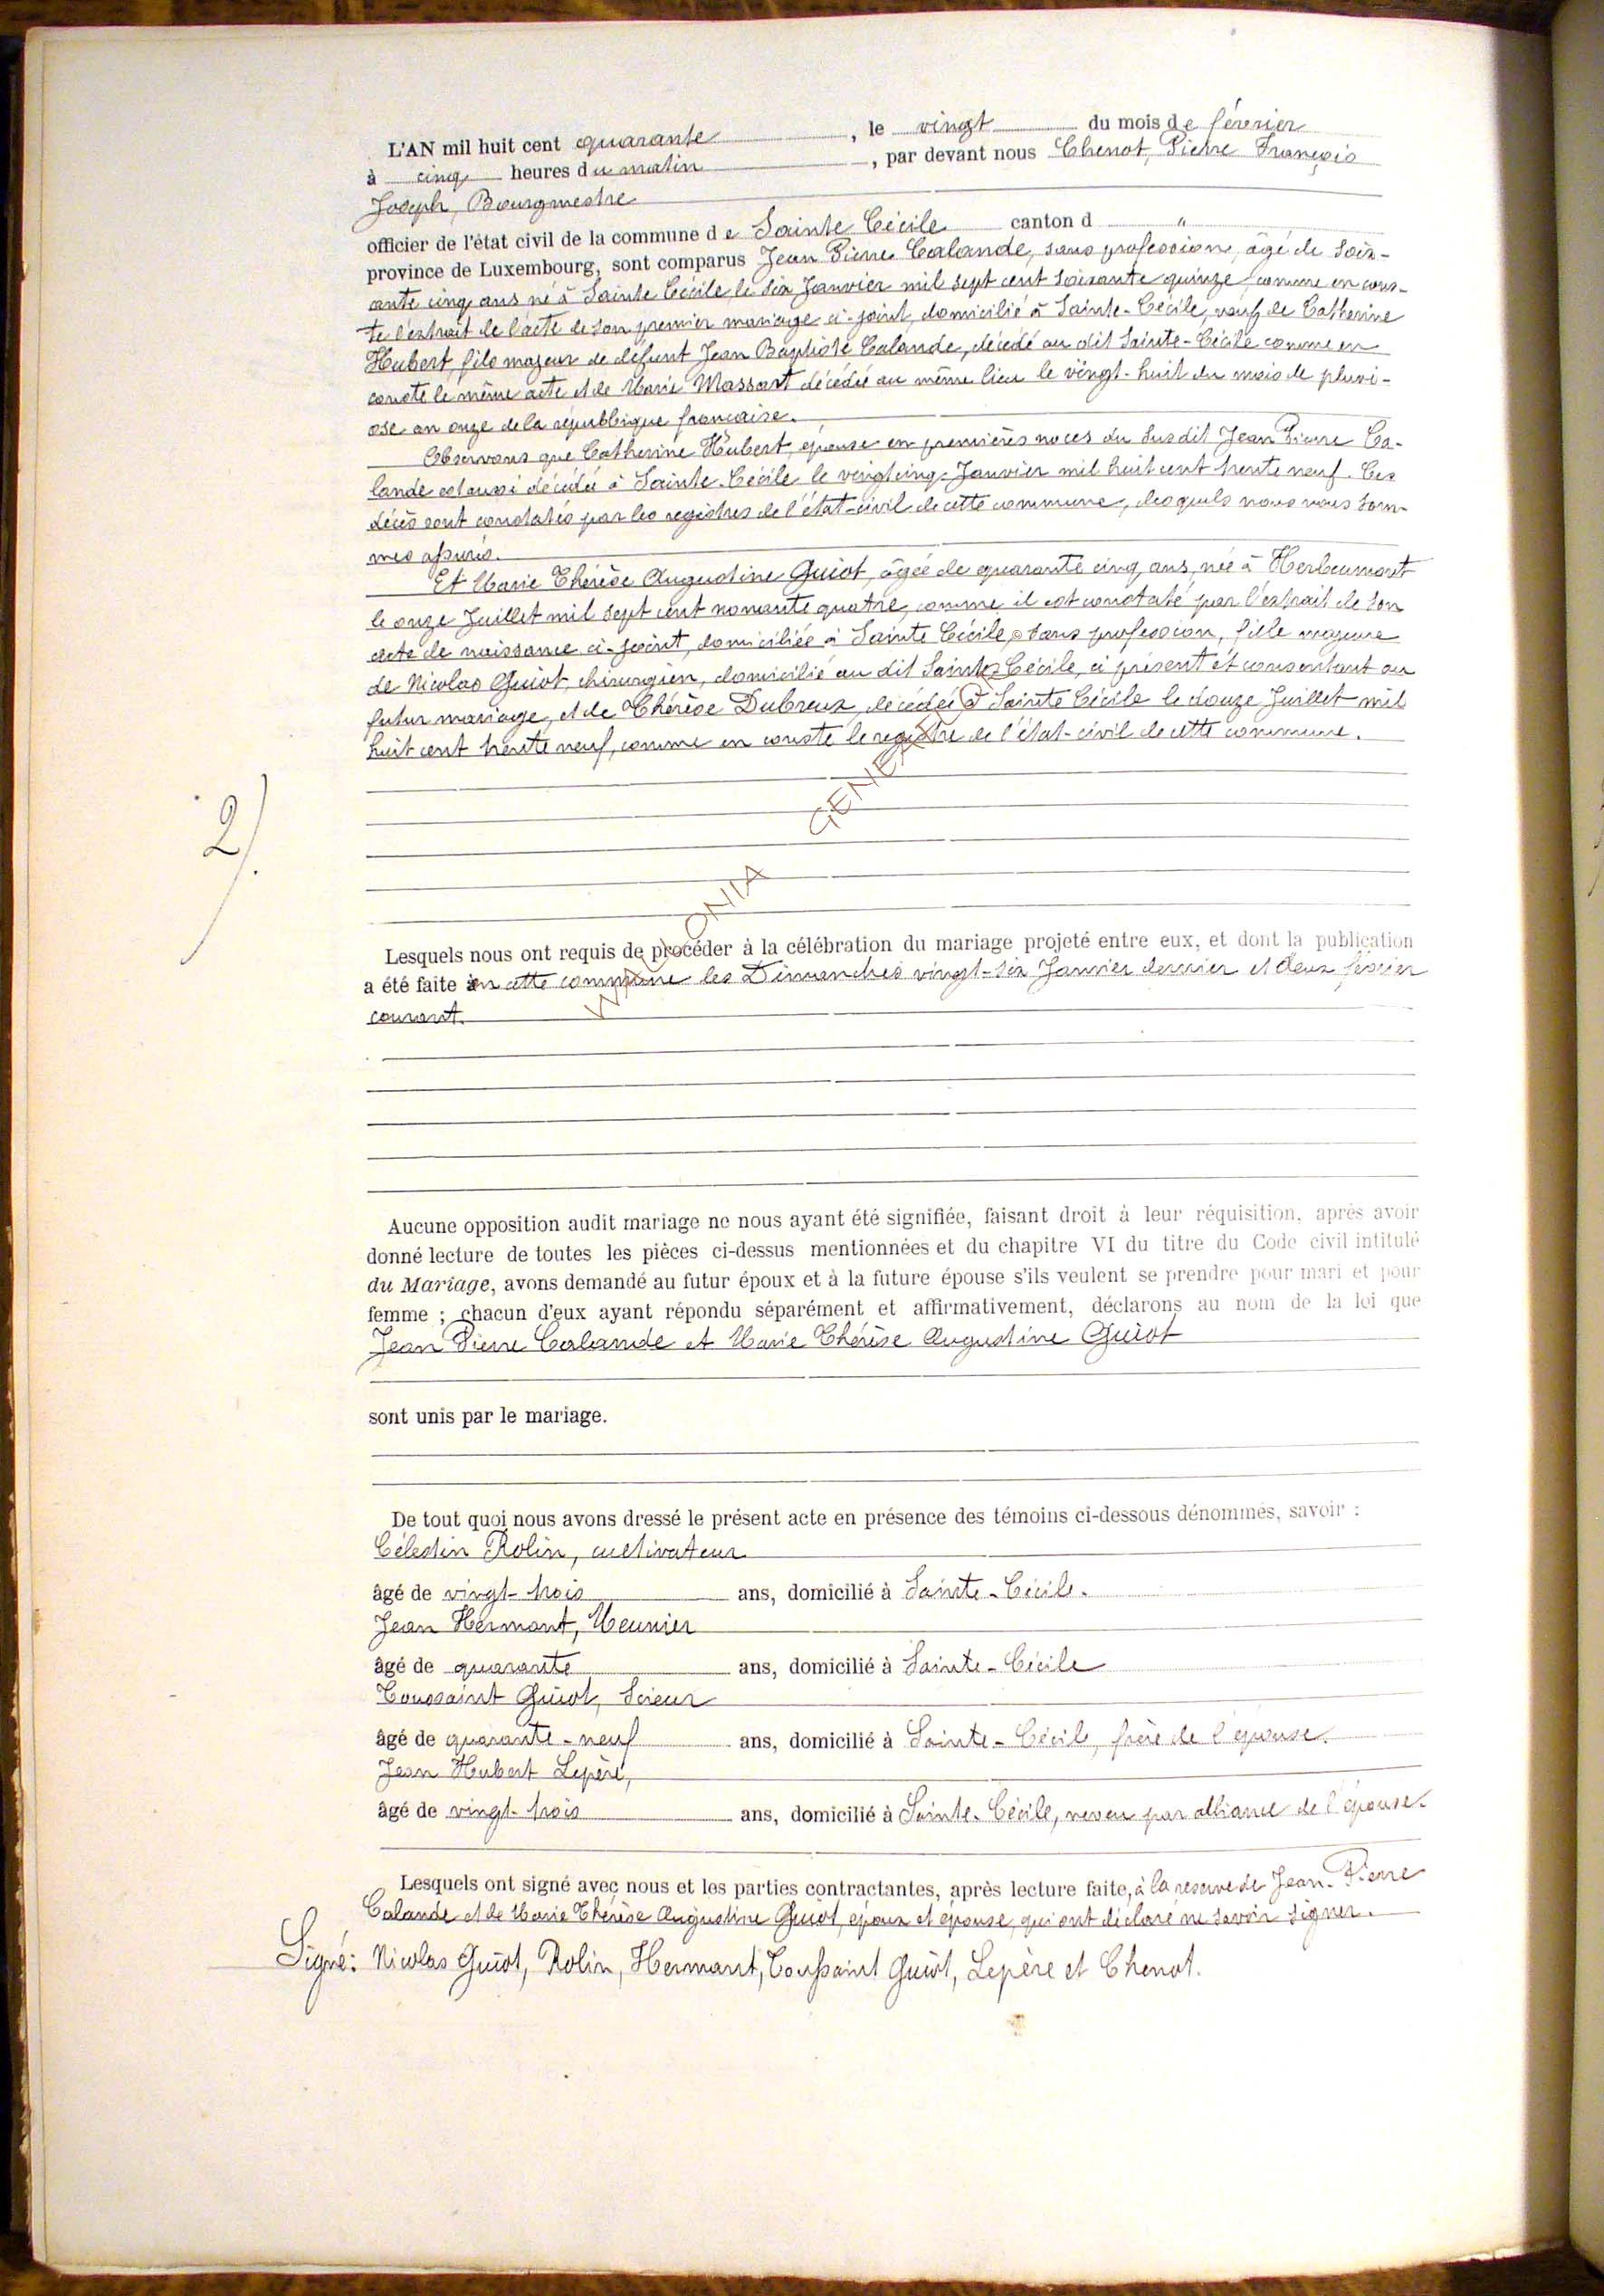 L'AN mil huit cent quarante, le vingt du mois de février
à cinq heures du matin, par devant nous Chenot, Pierre François
Joseph, Bourgmestre
officier de l'état civil de la commune de Sainte Cécile canton d "
province de Luxembourg, sont comparus Jean Pierre Calande, sans profession, âgé de soix-
ante cinq ans né à Sainte Cécile le six Janvier mil sept cent soixante quinze comme en cons-
te l'extrait de l'acte de son premier mariage ci-joint, domicilié à Sainte-Cécile, veuf de Catherine
Hubert, fils majeur de défunt Jean Baptiste Calande, décédé au dit Sainte-Cécile comme en
conste le même acte et de Marie Massart décédée au même lieu le vingt-huit du mois de pluvi-
ose an onze de la république française.
Observons que Catherine Hubert, épouse en premières noces du susdit Jean Pierre Ca-
lande est aussi décédée à Sainte-Cécile le vingt cinq Janvier mil huit cent trente neuf. Ces
décès sont constatés par les registres de l'état-civil de cette commune, desquels nous nous som-
mes assurés.
Et Marie Thérèse Augustine Guiot, âgée de quarante cinq ans, née à Herbeumont
le onze Juillet mil sept cent nonante quatre, comme il est constaté par l'extrait de son
acte de naissance ci-joint, domiciliée à Sainte Cécile, sans profession, fille majeure
de Nicolas Guiot, chirurgien, domicilié au dit Sainte Cécile, ci présent et consentant au
futur mariage, et de Thérèse Dubreux, décédée à Sainte Cécile le douze Juillet mil
huit cent trente neuf, comme en conste le registre de l'état-civil de cette commune.
2).
WALLONIA GENEALOGIE
Lesquels nous ont requis de procéder à la célébration du mariage projeté entre eux, et dont la publication
a été faite en cette commune les Dimanches vingt-six Janvier dernier et deux février
courant.
Aucune opposition audit mariage ne nous ayant été signifiée, faisant droit à leur réquisition, après avoir
donné lecture de toutes les pièces ci-dessus mentionnées et du chapitre VI du titre du Code civil intitulé
du Mariage, avons demandé au futur époux et à la future épouse s'ils veulent se prendre pour mari et pour
femme ; chacun d'eux ayant répondu séparément et affirmativement, déclarons au nom de la loi que
Jean Pierre Calande et Marie Thérèse Augustine Guiot
sont unis par le mariage.
De tout quoi nous avons dressé le présent acte en présence des témoins ci-dessous dénommés, savoir :
Célestin Rolin, cultivateur
âgé de vingt-trois ans, domicilié à Sainte-Cécile.
Jean Hermant, Meunier
âgé de quarante ans, domicilié à Sainte-Cécile
Toussaint Guiot, Scieur
âgé de quarante-neuf ans, domicilié à Sainte-Cécile, frère de l'épouse.
Jean Hubert Lepère,
âgé de vingt-trois ans, domicilié à Sainte-Cécile, neveu par alliance de l'épouse.
Lesquels ont signé avec nous et les parties contractantes, après lecture faite, à la reserve de Jean-Pierre
Calande et de Marie Thérèse Augustine Guiot, époux et épouse, qui ont déclaré ne savoir signer.
Signé: Nicolas Guiot, Rolin, Hermant, Toussaint Guiot, Lepère et Chenot.